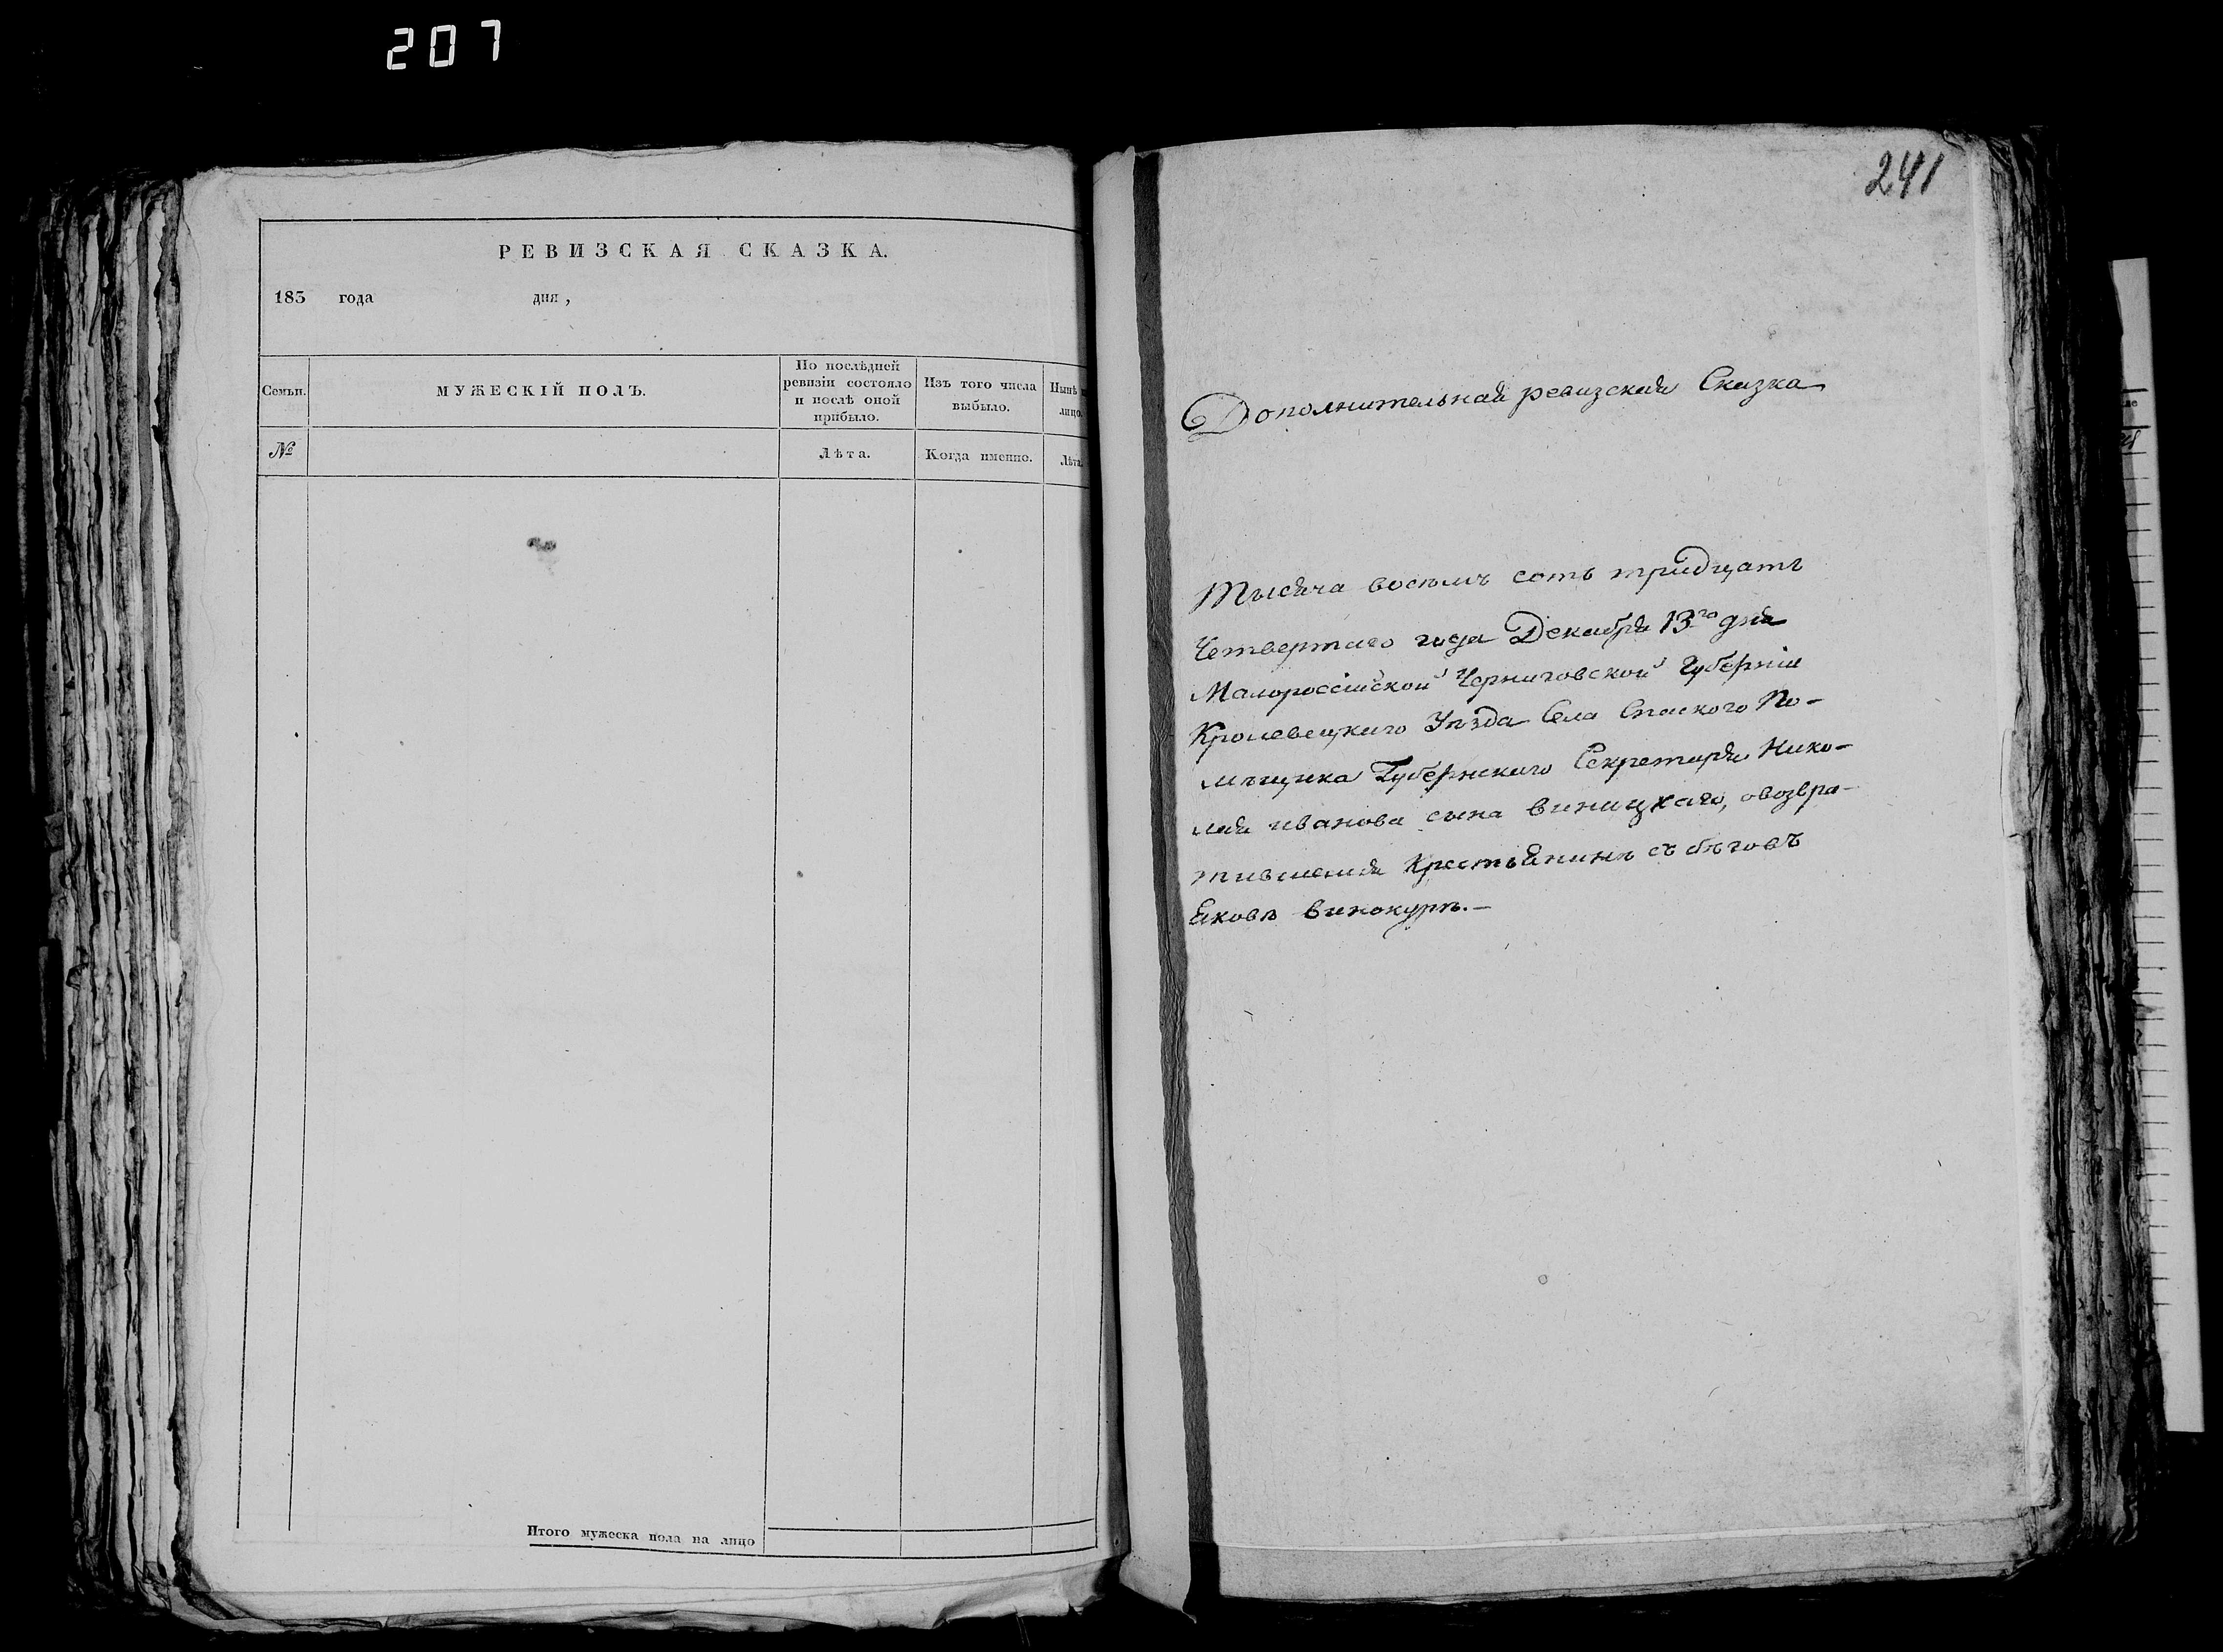 207
РЕВИЗСКАЯ СКАЗКА.
183 года дня,
Семьи.
МУЖЕСКІЙ ПОЛЪ.
По послѣдней
ревизіи состояло
и послѣ оной
прибыло.
Изъ того числа
выбыло.
Нынѣ
лицо.
№
Лѣта.
Когда именно.
Лѣта.
Итого мужеска пола на лицо
241
Дополнительная ревизская Сказка
Тысяча восемъ сотъ тридцать
Четвертаго года Декабря 13го дня
Малороссійской Черниговской Губерніи
Кролевецкаго Уѣзда Села Спаского По-
мѣщика Губернскаго Секретаря Нико-
лая иванова сына виницкаго, овозвра-
тившемся Крестьянинѣ съ бѣговъ
Яковѣ винокурѣ.—